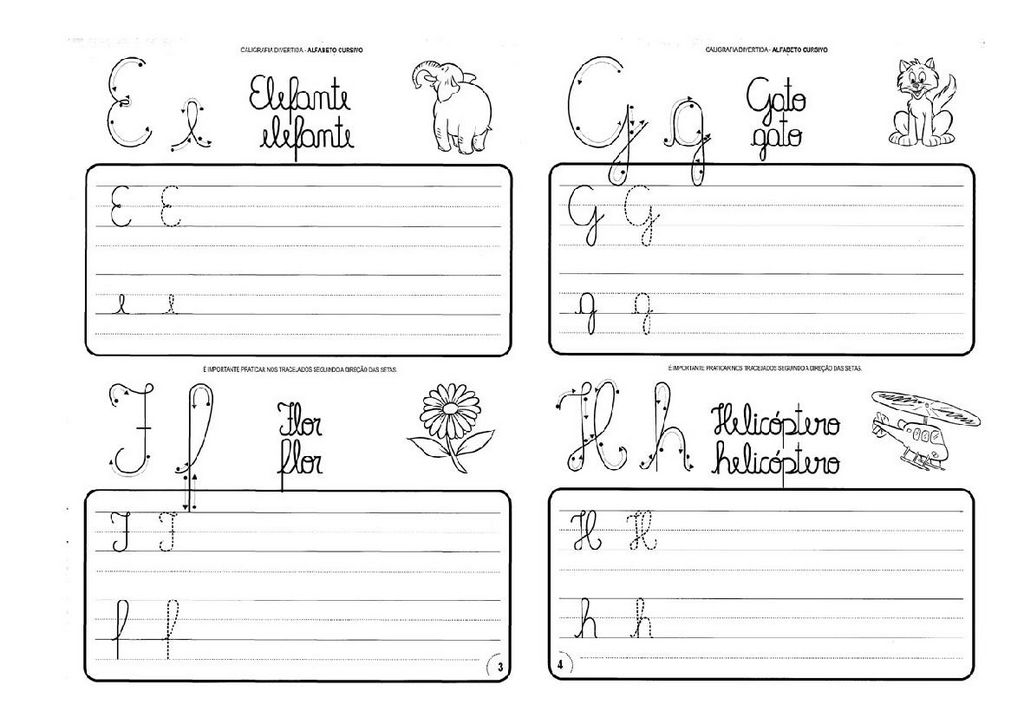 CALIGRAFIA DIVERTIDA - ALFABETO CURSIVO
E e
Elefante
elefante
E E
e e
É IMPORTANTE PRATICAR NOS TRACEJADOS SEGUINDO A DIREÇÃO DAS SETAS.
F f
Flor
flor
F F
f f
3
CALIGRAFIA DIVERTIDA - ALFABETO CURSIVO
G g
Gato
gato
G G
g g
É IMPORTANTE PRATICAR NOS TRACEJADOS SEGUINDO A DIREÇÃO DAS SETAS.
H h
Helicóptero
helicóptero
H H
h h
4